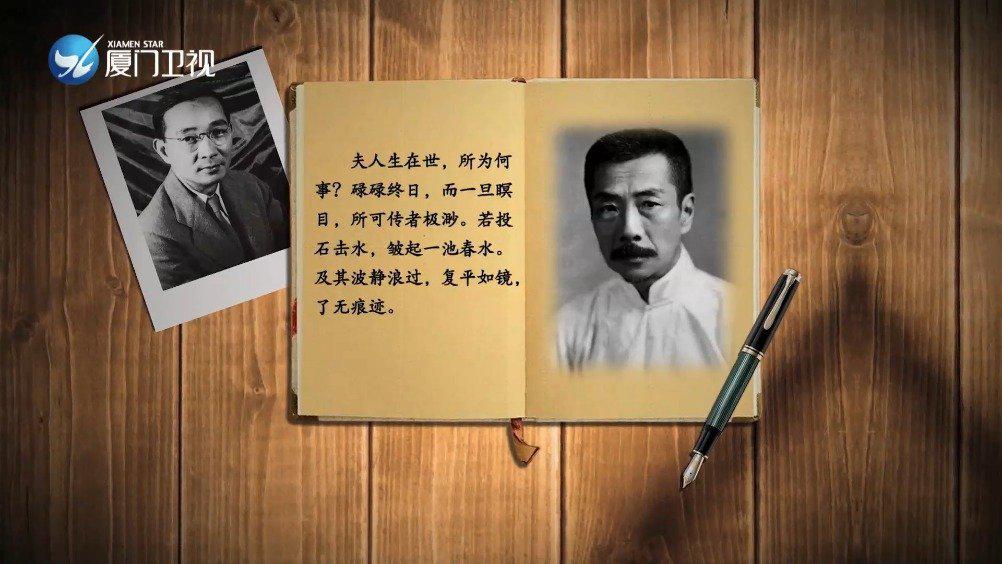 XIAMEN STAR
厦门卫视
夫人生在世，所为何
事？碌碌终日，而一旦瞑
目，所可传者极渺。若投
石击水，皱起一池春水。
及其波静浪过，复平如镜，
了无痕迹。